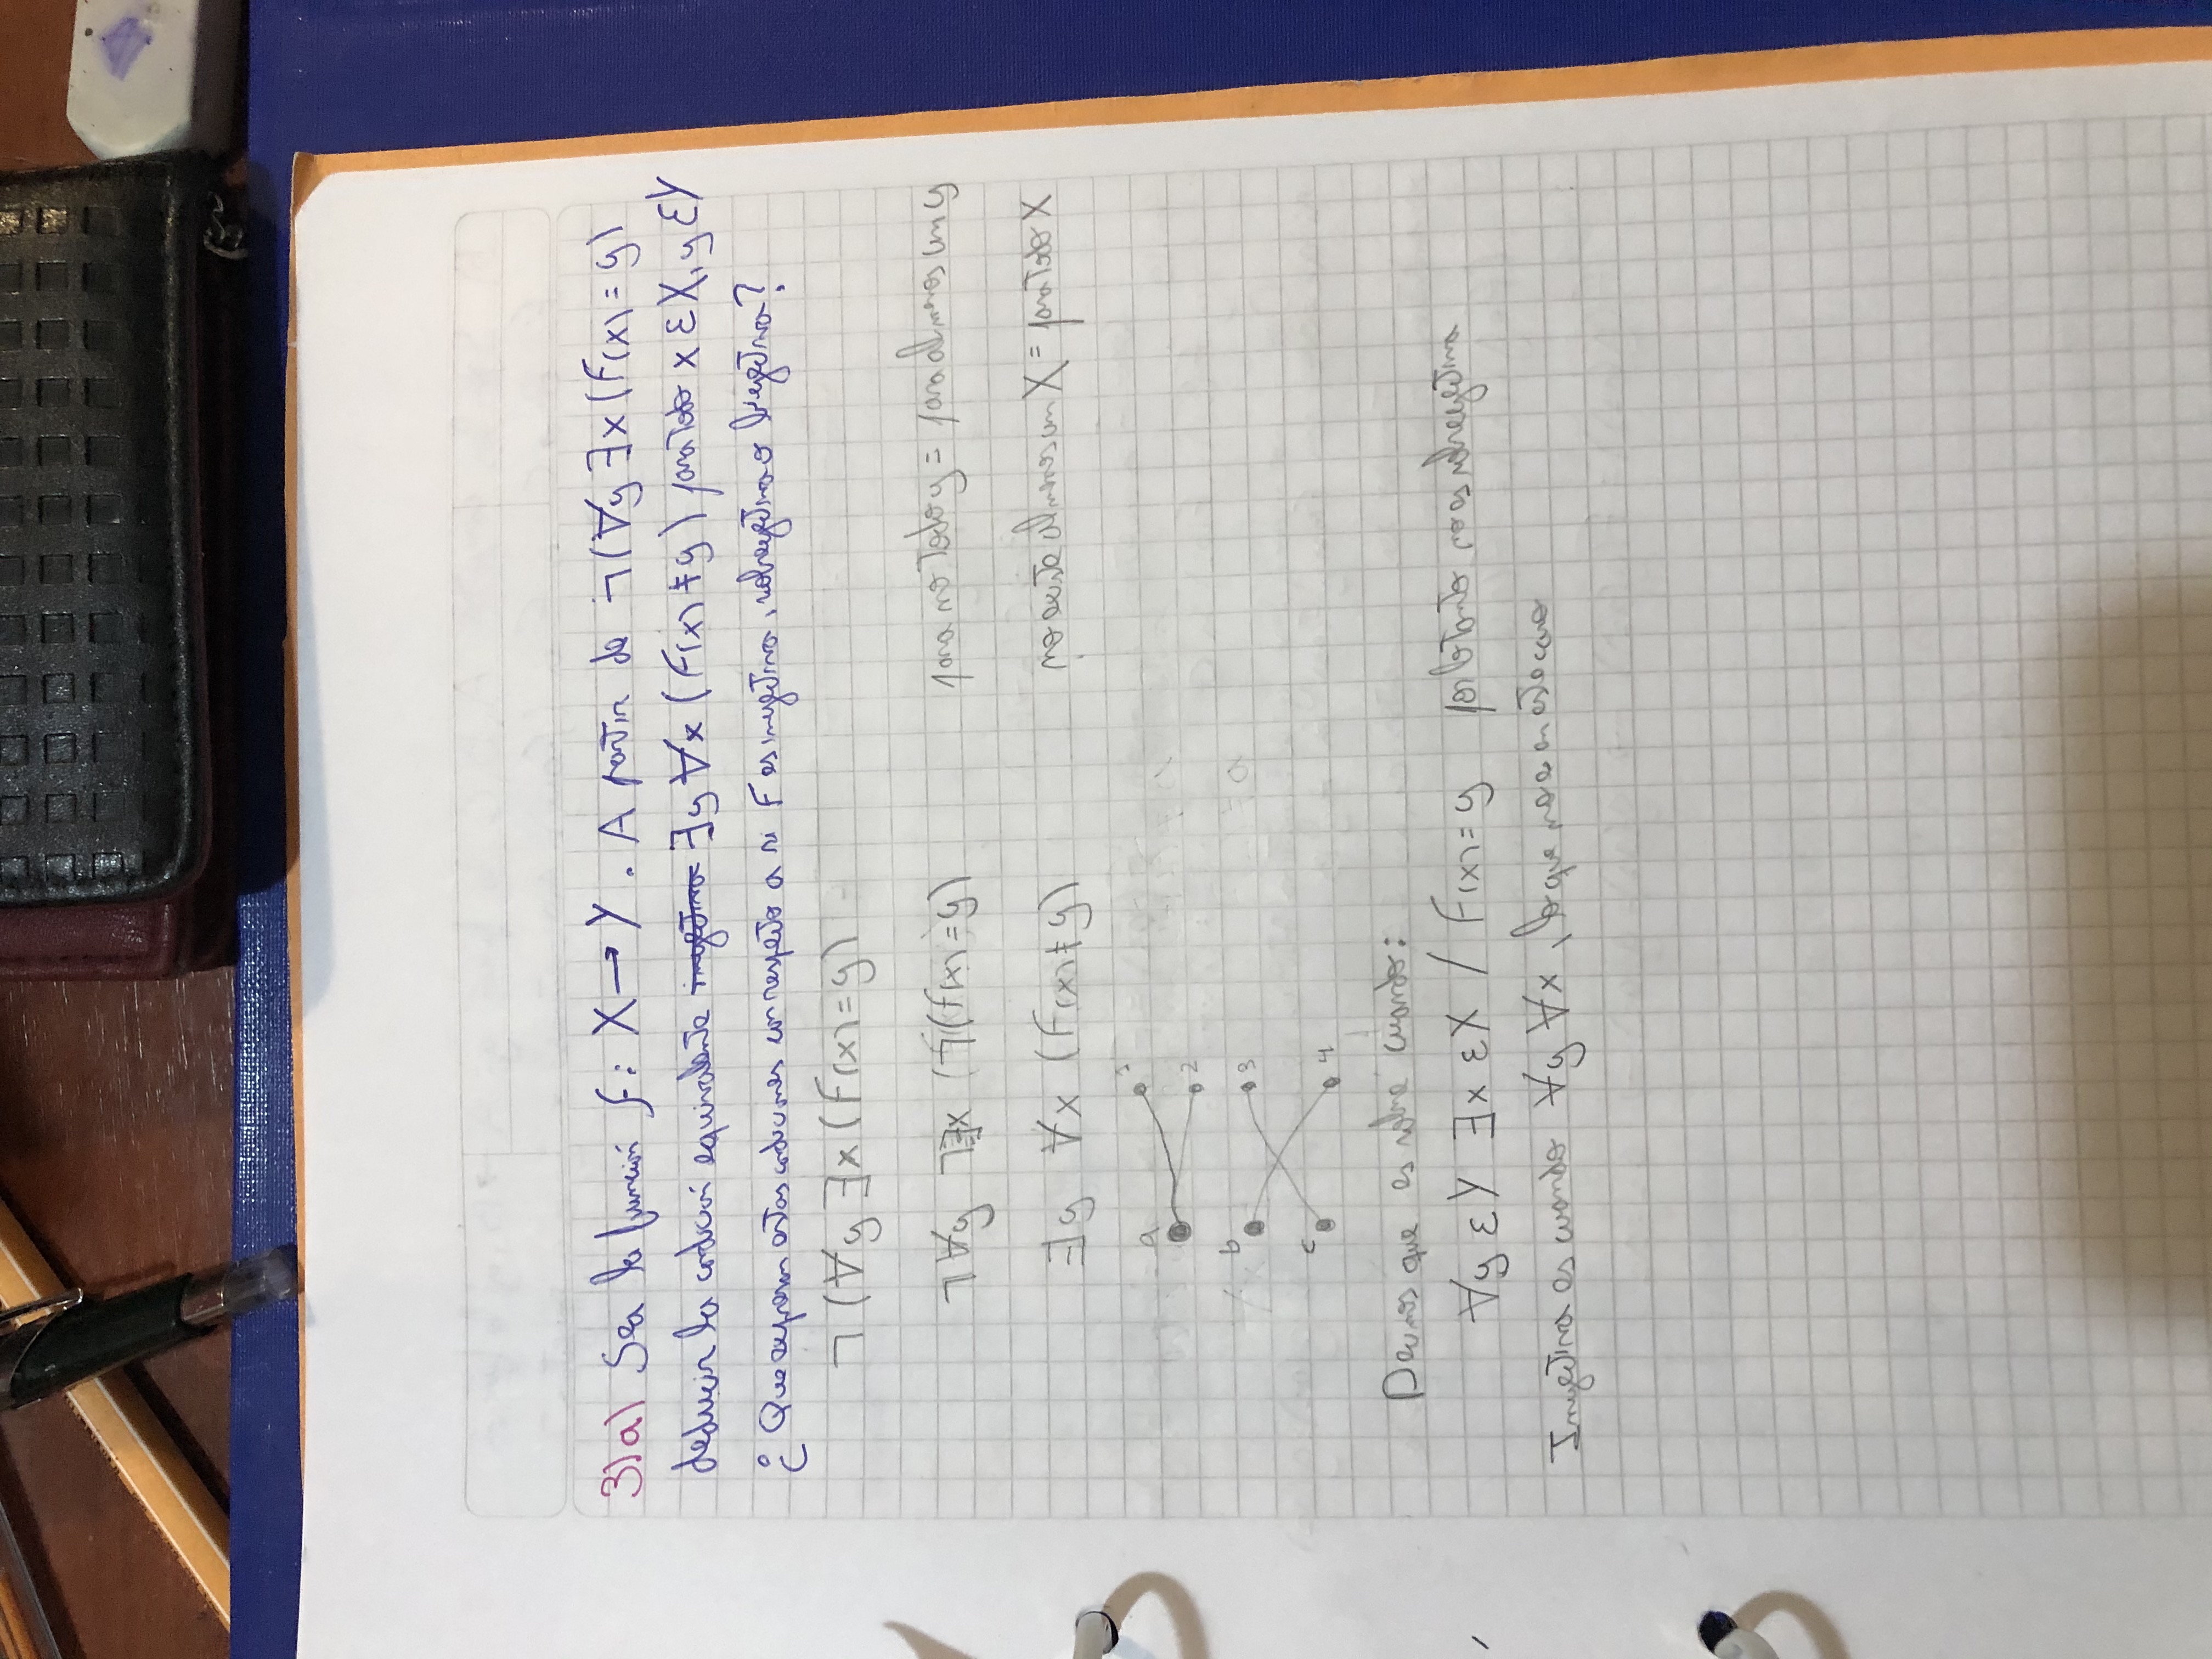 3)a) Sea la función f: X → Y. A partir de ¬(∀y ∃x (F(x) = y)
deducir la condición equivalente inyectiva ∃y ∀x (F(x) ≠ y) para todo x ε X, y ε Y
¿ Que expresan estas condiciones con respecto a si F es inyectiva, sobreyectiva o biyectiva?
¬ (∀y ∃x (F(x) = y)
¬∀y ¬∃x (¬(F(x) = y) para no todo y = para al menos un y
∃y ∀x (F(x) ≠ y) no existe al menos un X = para todo X
a 1
2
b 3
c 4
Decimos que es sobre cuando:
∀y ε Y ∃x ε X / F(x) = y por lo tanto no es sobreyectiva
Inyectiva es cuando ∀y ∀x, lo que no es en este caso